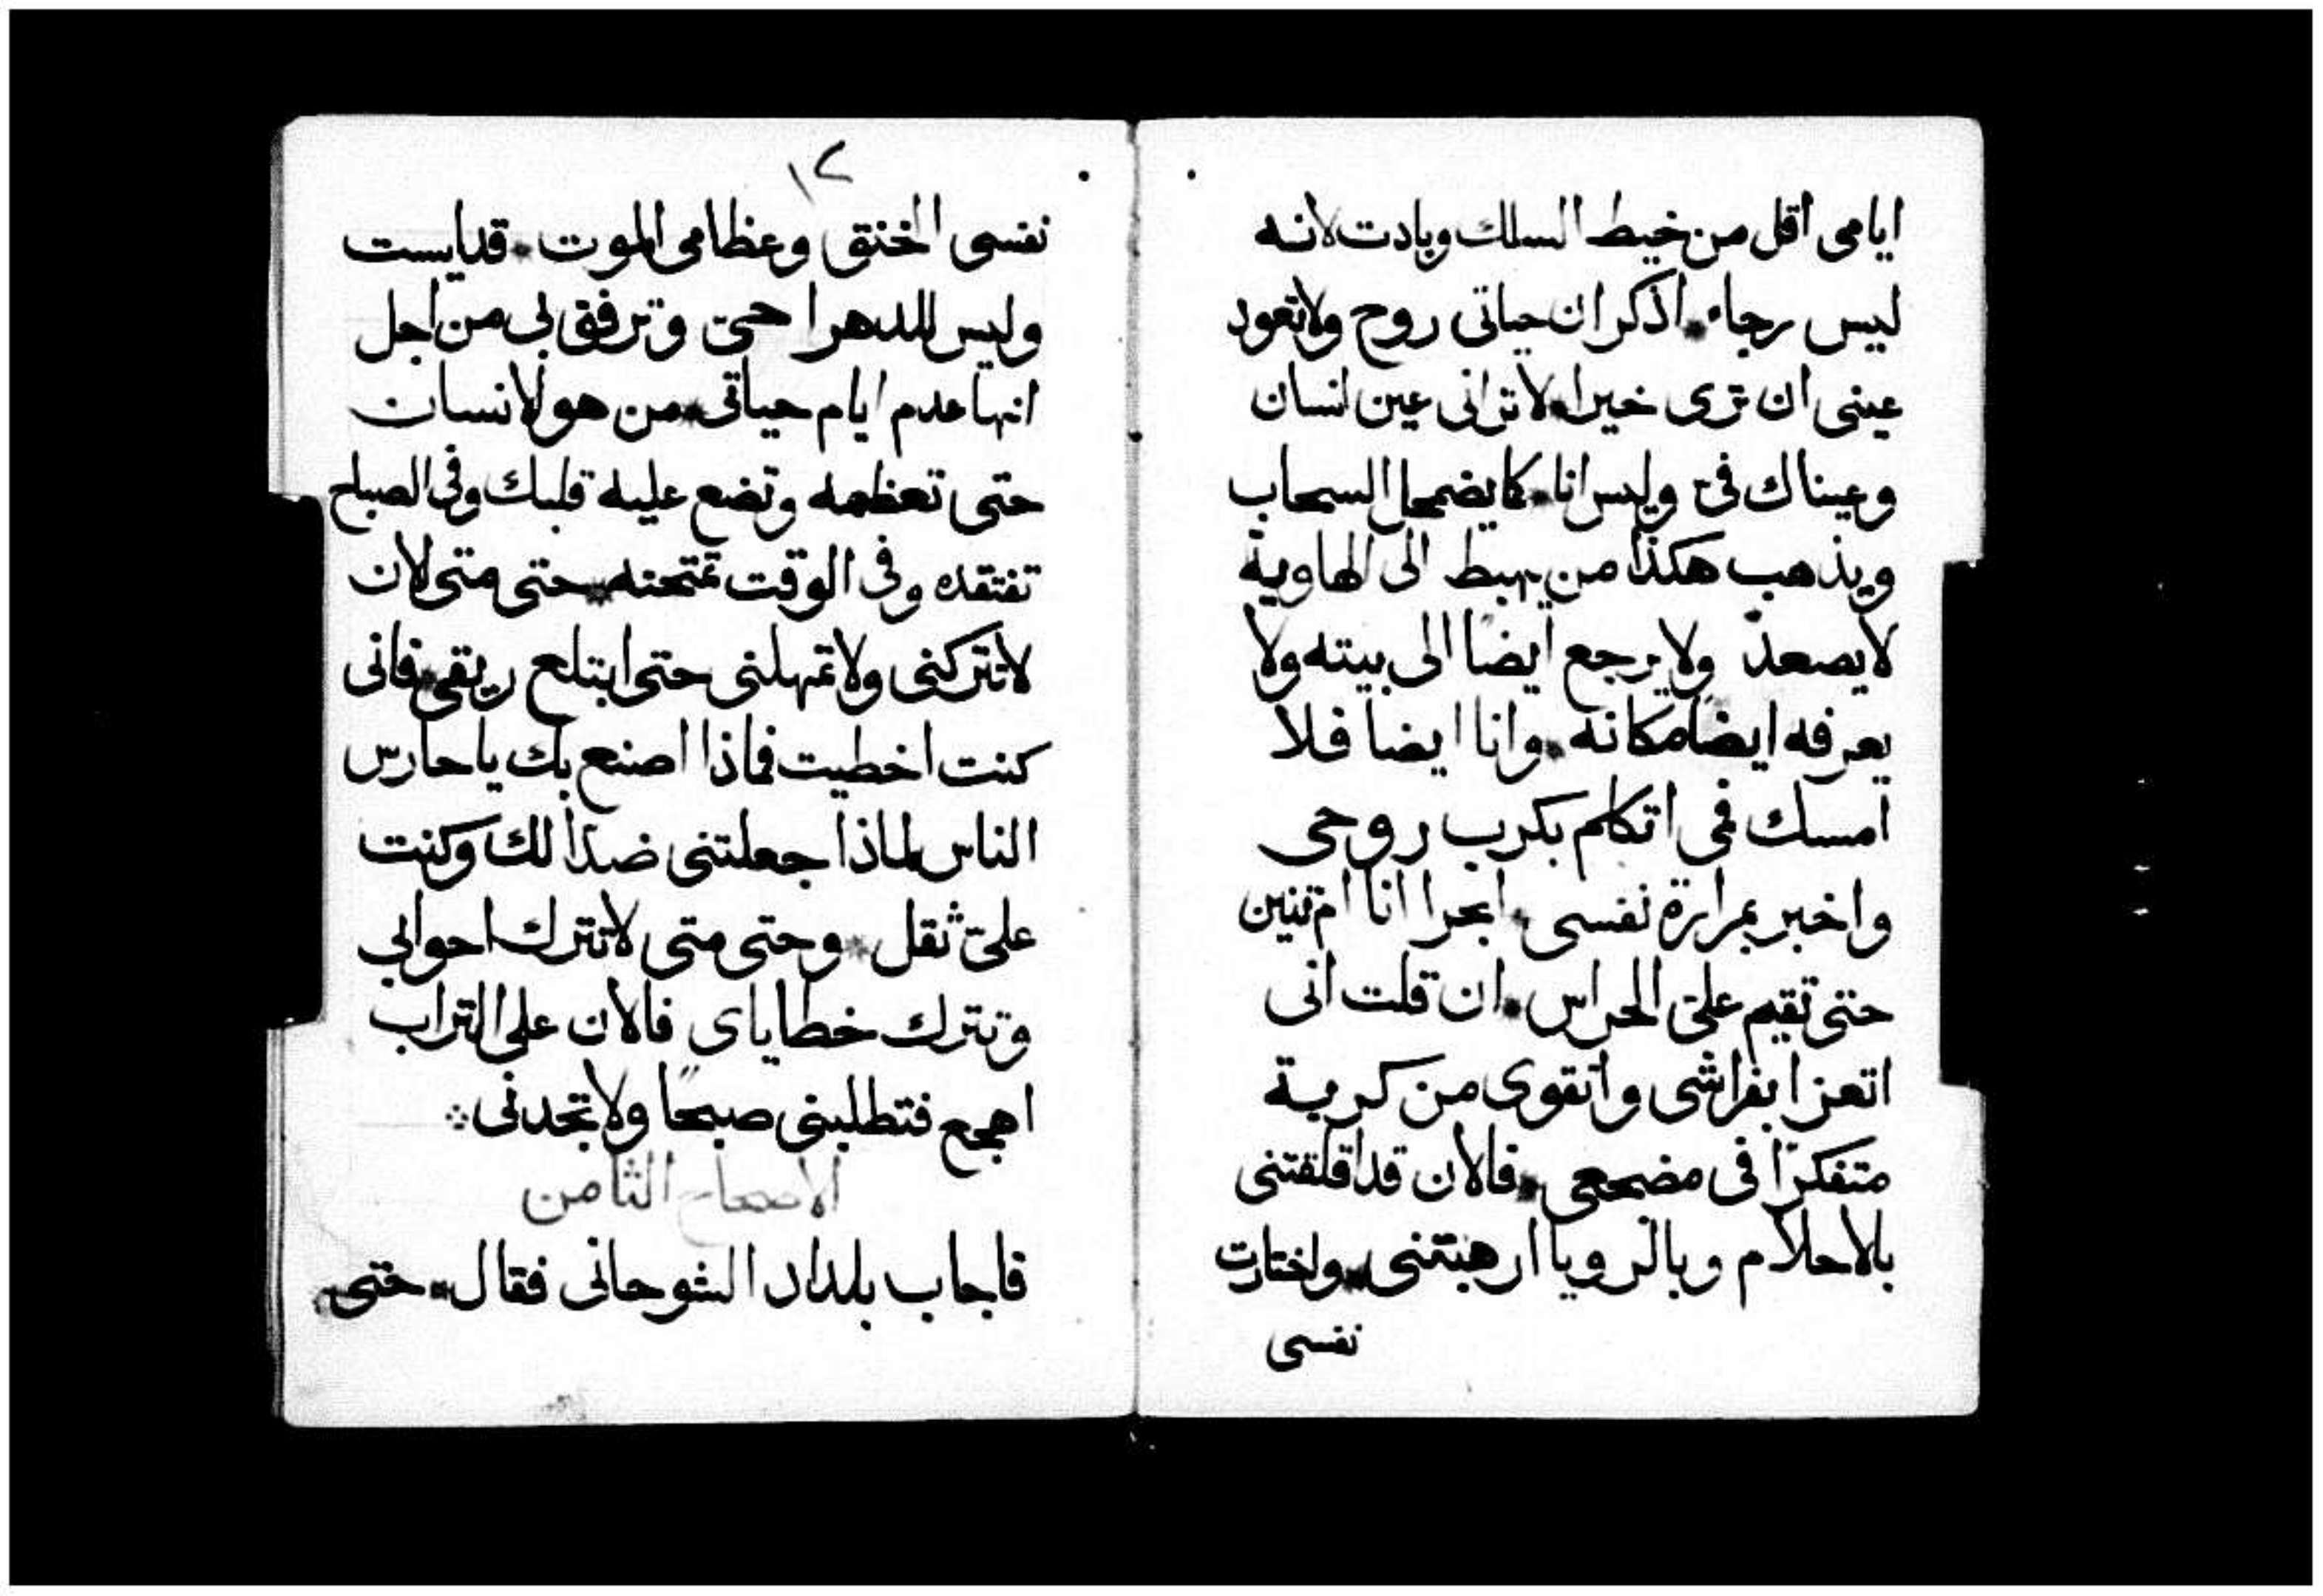 ايامى اقل من خيط السلك وبادت لانه
ليس رجاء. اذكر ان حياتى روح ولاتعود
عينى ان ترى خيرا. لاترانى عين انسان
وعيناك فىّ وليس انا. كما يضمحل السحاب
ويذهب هكذا من يهبط الى الهاوية
لايصعد ولايرجع ايضا الى بيته ولا
يعرفه ايضا مكانه. وانا ايضا فلا
امسك فمى اتكلم بكرب روحى
واخبر بمرارة نفسى. ابحرا انا ام تنين
حتى تقيم علىّ الحراس. ان قلت انى
اتعزا بفراشى واتقوى من كربة
متفكرًا فى مضجعى. فالان قد اقلقتنى
بالاحلام وبالرويا ارهبتنى. واختارت
نفسى
١٢
نفسى الخنق وعظامى الموت. قد ايست
وليس للدهر احيى وترفق بى من اجل
انها عدم ايام حياتى. من هو الانسان
حتى تعظمه وتضع عليه قلبك وفى الصباح
تفتقده وفى الوقت تمتحنه. حتى متى الان
لاتتركنى ولاتمهلنى حتى ابتلع ريقى. فانى
كنت اخطيت فماذا اصنع بك ياحارس
الناس لماذا جعلتنى ضدًا لك وكنت
علىّ ثقل. وحتى متى لاتترك احوابى
وتترك خطاياى فالان على التراب
اهجع فتطلبنى صبحًا ولاتجدنى ؞
الاصحاح الثامن
فاجاب بلداد الشوحانى فقال. حتى